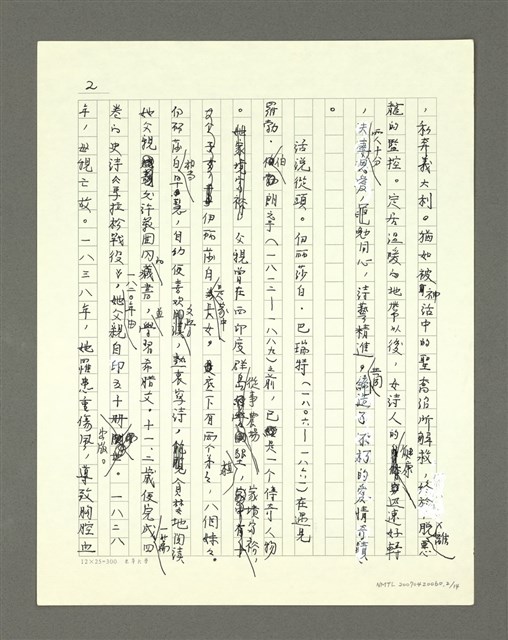 2
，私奔義大利。猶如被神話中的聖喬治所解救，終於脫離惡
龍的監控。定居溫暖的地帶以後，女詩人的健康迅速好轉
，夫妻十分恩愛，黽勉同心，詩藝精進，共同締造了不朽的愛情奇蹟
。
話說從頭。伊莉莎白·巴瑞特（一八〇六—一八六一）在遇見
羅勃·伯朗寧（一八一二—一八八九）之前，已是一個傳奇人物
。她父親曾在西印度群島從事農務，家境富裕，
伊莉莎白是長女。底下有兩個弟弟，八個妹妹。
伊莉莎白相當早慧，自幼便喜歡閱讀，熱衷寫詩，
她父親允許範圍內的藏書，並學習希臘文。十一、二歲便完成一篇四
卷的史詩《馬拉松戰役》，她父親自印五十冊出版。一八二八
年，母親亡故。一八三八年，她罹患重傷風，導致胸腔血
12×25=300
NMTL 20070420060_2/14